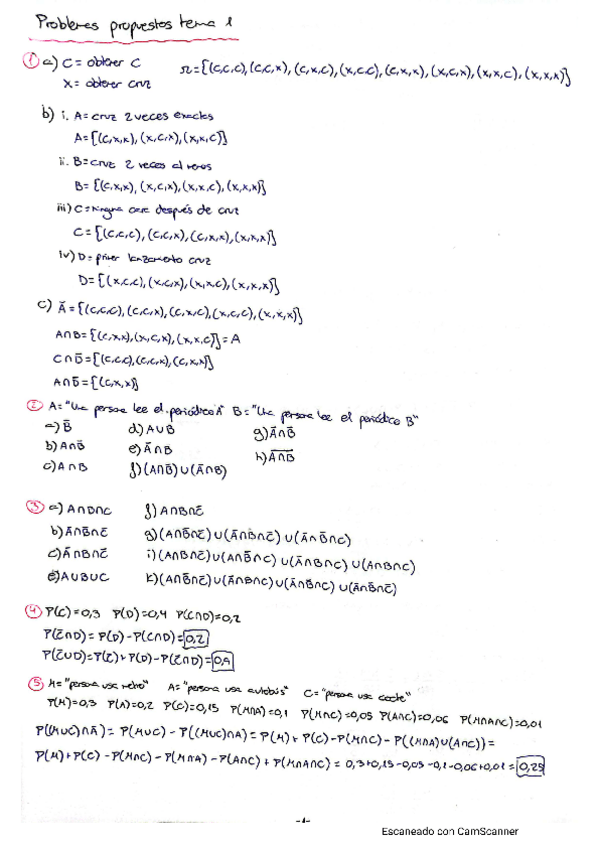 Problemas propuestos tema 1
① a) C = obtener C Ω = {(C,C,C), (C,C,X), (C,X,C), (X,C,C), (C,X,X), (X,C,X), (X,X,C), (X,X,X)}
X = obtener cruz
b) i. A = cruz 2 veces exactas
A = {(C,X,X), (X,C,X), (X,X,C)}
ii. B = cruz 2 veces al menos
B = {(C,X,X), (X,C,X), (X,X,C), (X,X,X)}
iii) C = ninguna cara después de cruz
C = {(C,C,C), (C,C,X), (C,X,X), (X,X,X)}
iv) D = primer lanzamiento cruz
D = {(X,C,C), (X,C,X), (X,X,C), (X,X,X)}
c) Ā = {(C,C,C), (C,C,X), (C,X,C), (X,C,C), (X,X,X)}
A∩B = {(C,X,X), (X,C,X), (X,X,C)} = A
C∩D̄ = {(C,C,C), (C,C,X), (C,X,X)}
A∩D̄ = {(C,X,X)}
② A = "Una persona lee el periódico A" B = "Una persona lee el periódico B"
a) B̄ d) A∪B g) Ā∩B̄
b) A∩B̄ e) Ā∩B h) A̅∩̅B̅
c) A∩B f) (A∩B̄)∪(Ā∩B)
③ a) A∩B∩C f) A∩B∩C̄
b) Ā∩B̄∩C̄ g) (A∩B̄∩C̄)∪(Ā∩B∩C̄)∪(Ā∩B̄∩C)
c) Ā∩B∩C̄ i) (A∩B∩C̄)∪(A∩B̄∩C)∪(Ā∩B∩C)∪(A∩B∩C)
e) A∪B∪C k) (A∩B̄∩C̄)∪(Ā∩B∩C)∪(Ā∩B̄∩C)∪(Ā∩B̄∩C̄)
④ P(C)=0,3 P(D)=0,4 P(C∩D)=0,2
P(C̄∩D) = P(D) - P(C∩D) = 0,2
P(C̄∪D) = P(C̄) + P(D) - P(C̄∩D) = 0,9
⑤ M = "persona usa metro" A = "persona usa autobús" C = "persona usa coche"
P(M)=0,3 P(A)=0,2 P(C)=0,15 P(M∩A)=0,1 P(M∩C)=0,05 P(A∩C)=0,06 P(M∩A∩C)=0,01
P((M∪C)∩Ā) = P(M∪C) - P((M∪C)∩A) = P(M) + P(C) - P(M∩C) - P((M∩A)∪(A∩C)) =
P(M)+P(C) - P(M∩C) - P(M∩A) - P(A∩C) + P(M∩A∩C) = 0,3+0,15-0,05-0,1-0,06+0,01 = 0,25
-1-
Escaneado con CamScanner